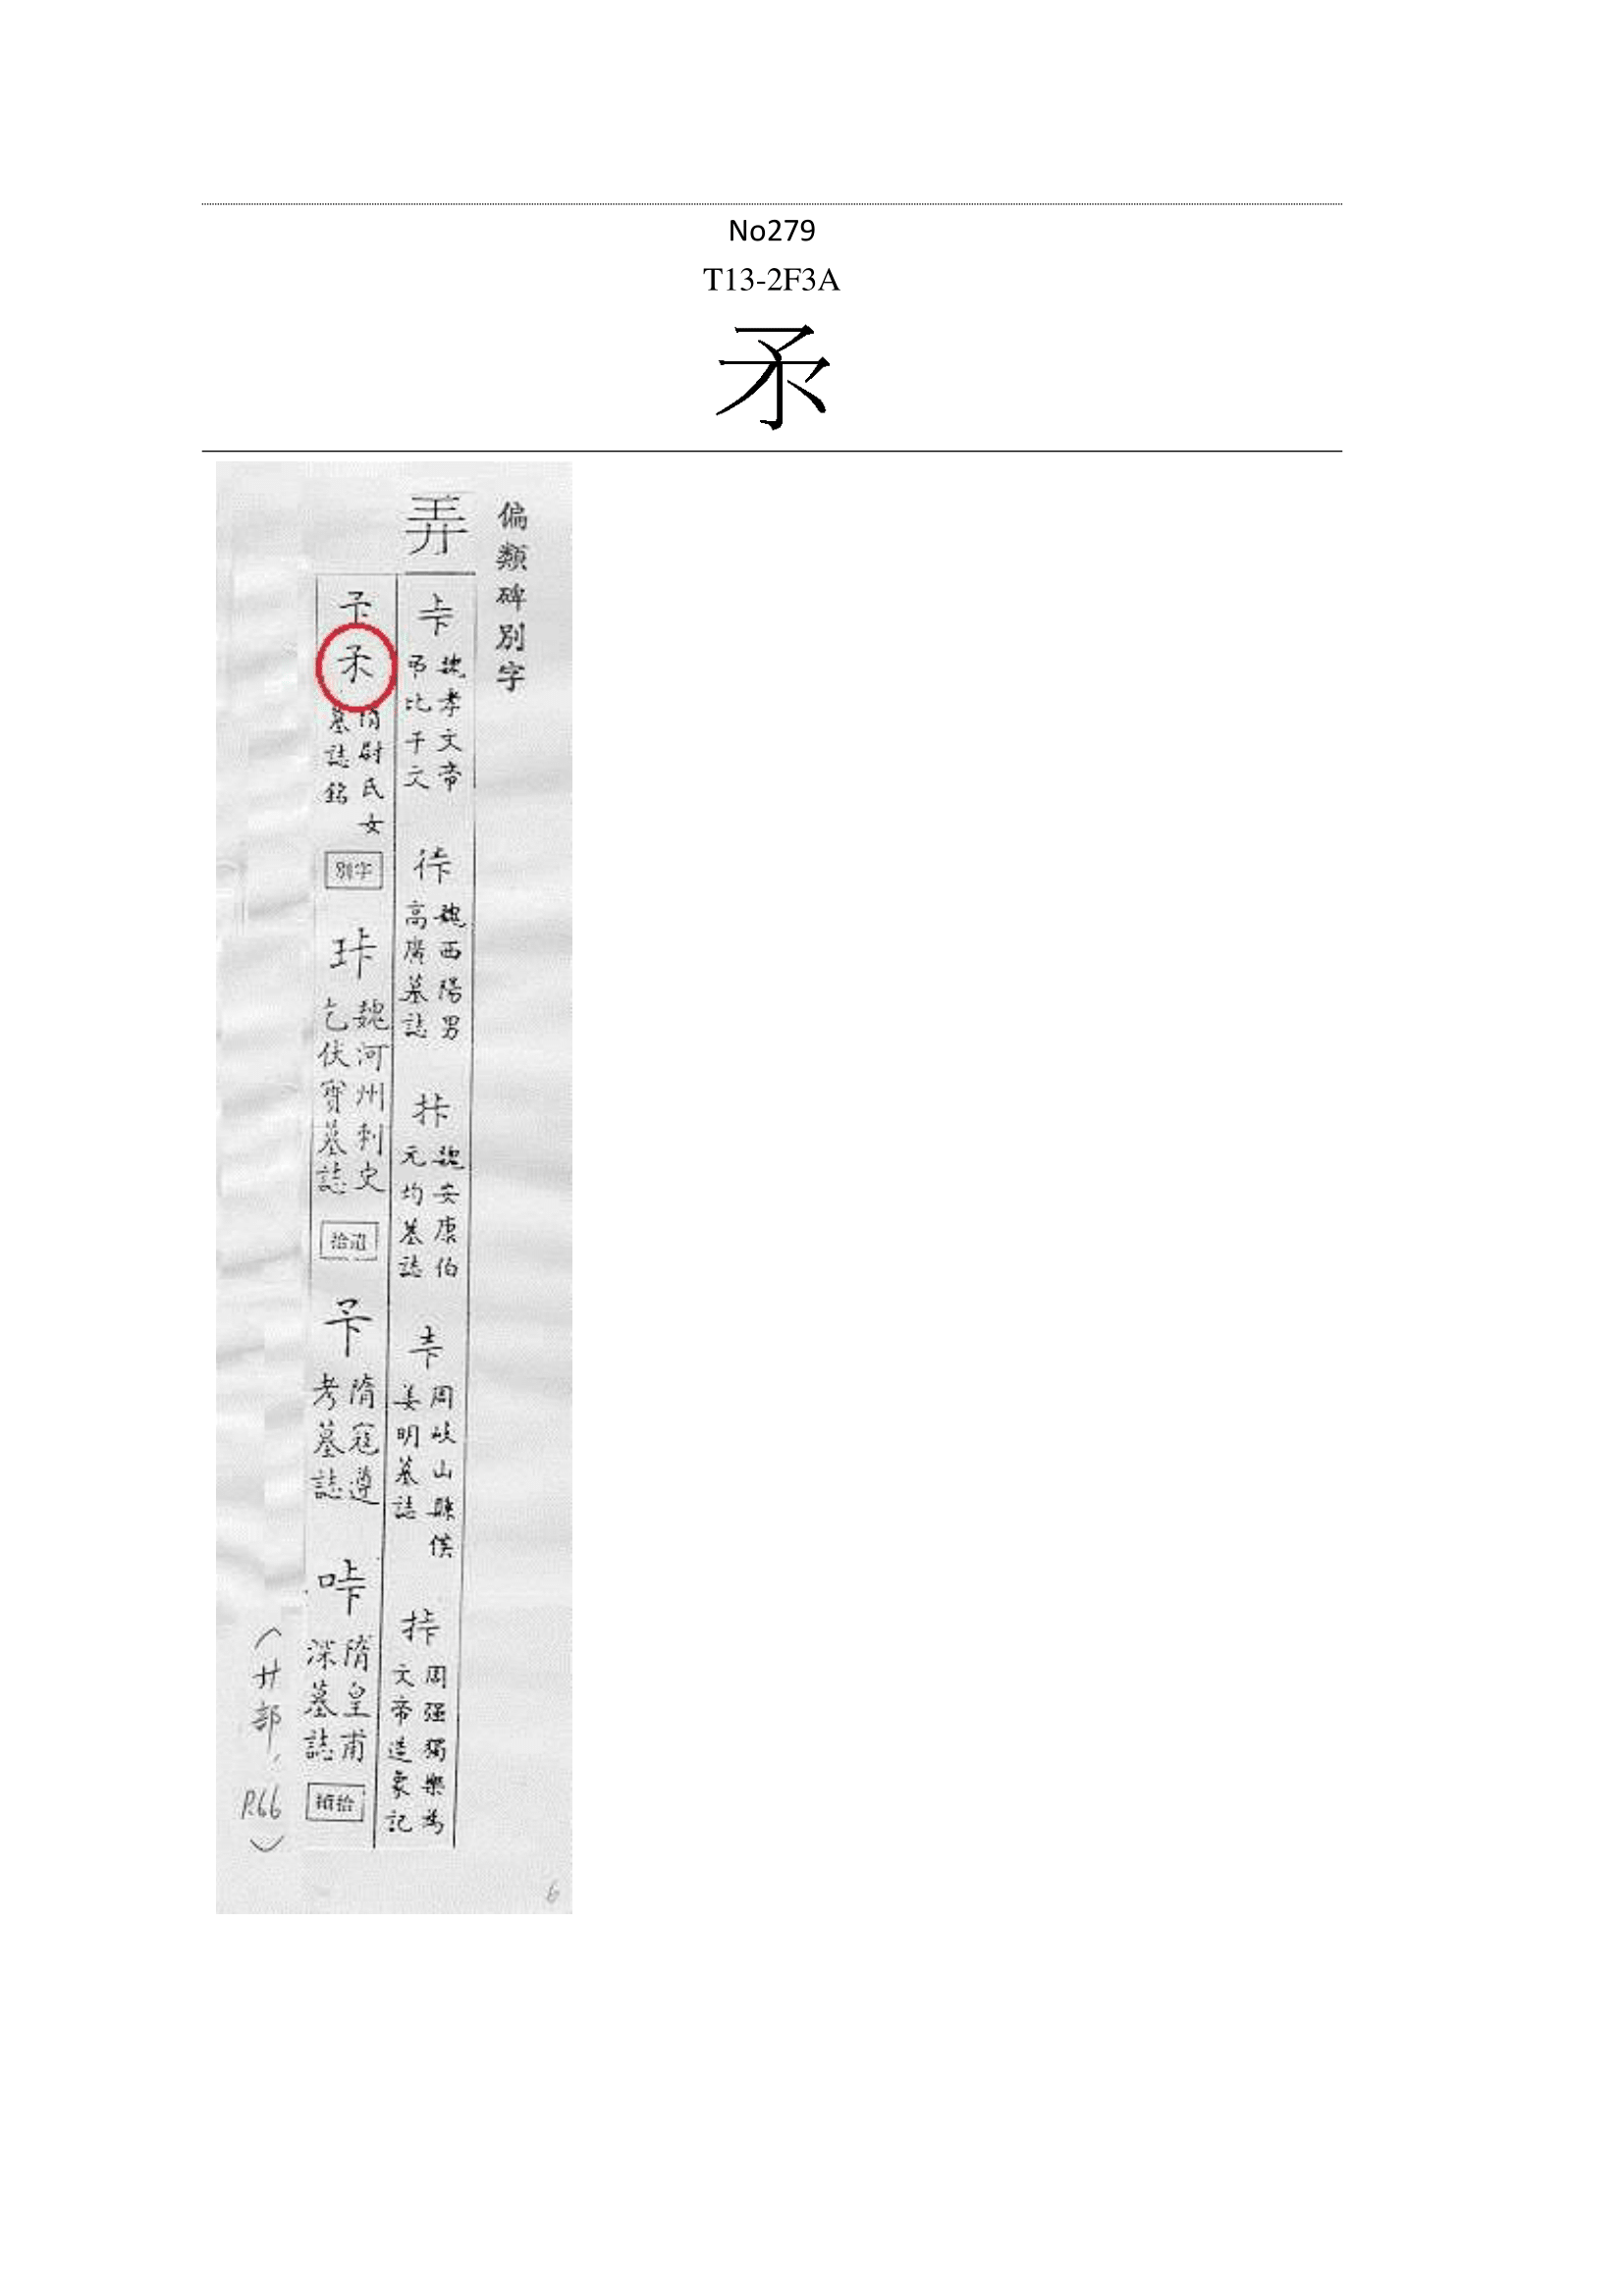 No279
T13-2F3A
偏類碑別字
弄
魏孝文帝
弔比干文
魏西陽男
高廣墓誌
魏安康伯
元均墓誌
周岐山縣侯
姜明墓誌
周强獨樂為
文帝造象記
隋尉氏女
墓誌銘
別字
魏河州刺史
乞伏寶墓誌
拾遺
隋寇遵
考墓誌
隋皇甫
深墓誌
(廾部, P.66)
6